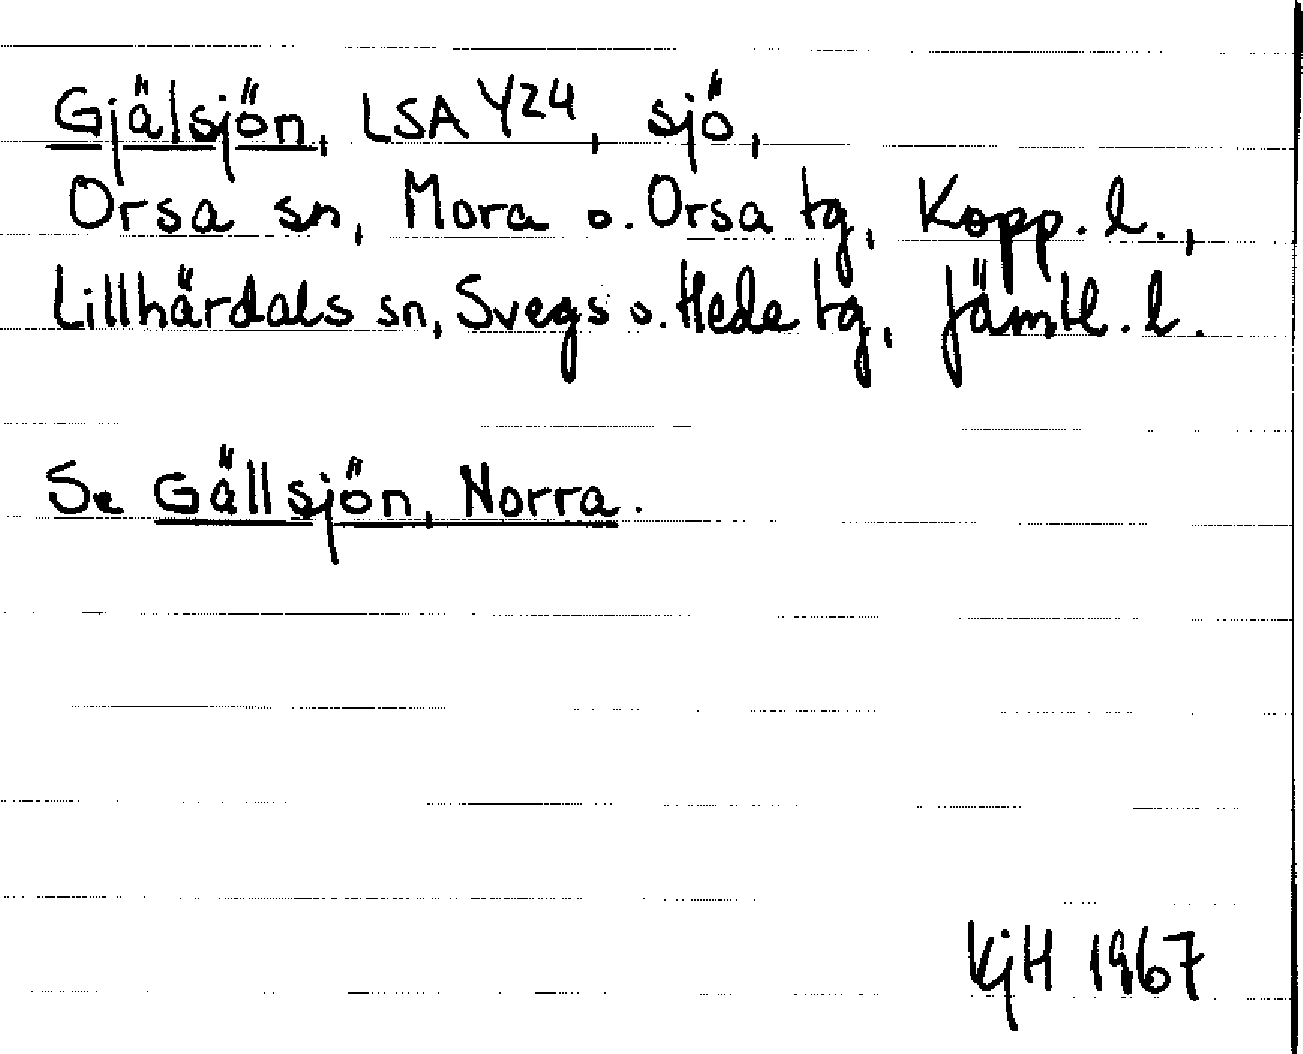 Gjälsjön, LSA Y24, sjö,
Orsa sn, Mora o. Orsa tg, Kopp. l.,
Lillhärdals sn, Svegs o. Hede tg, Jämtl. l.
Se Gällsjön, Norra.
KjH 1967